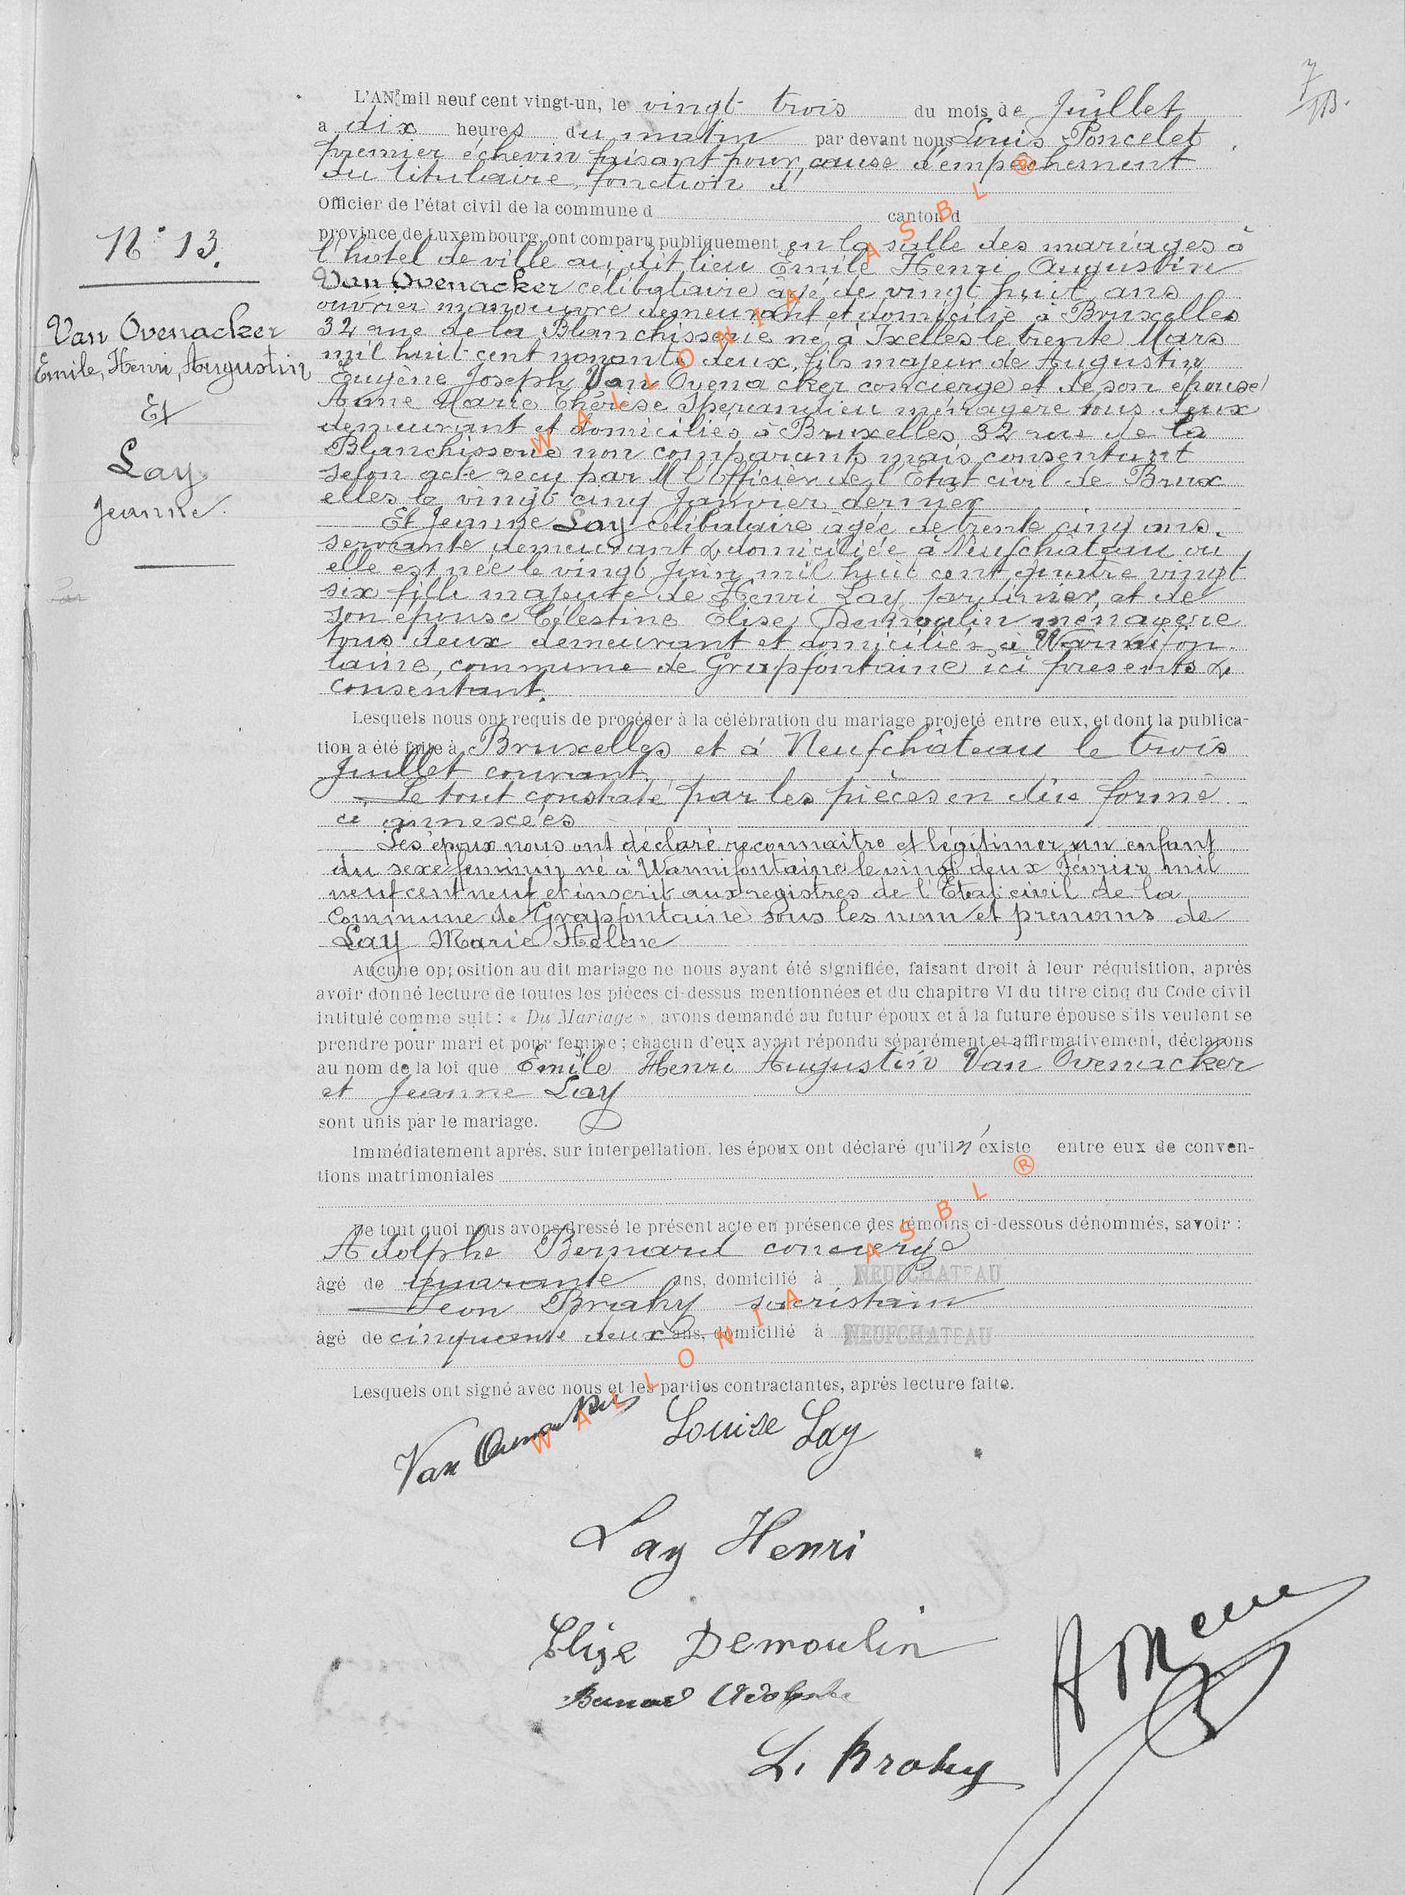 7
L'AN mil neuf cent vingt-un, le vingt trois du mois de Juillet
a dix heures du matin par devant nous Louis Poncelet
premier échevin faisant pour cause d'empêchement
du titulaire, fonction d'
Officier de l'état civil de la commune d canton d
province de Luxembourg, ont comparu publiquement en la salle des mariages à
l'hôtel de ville au dit lieu Emile Henri Augustin
Van Ovenacker célibataire agé de vingt huit ans
ouvrier manouvre demeurant et domicilié à Bruxelles
32 rue de la Blanchisserie né à Ixelles le trente Mars
mil huit cent nonante deux, fils majeur de Augustin
Eugène Joseph Van Ovenacker concierge et de son épouse
Anne Marie Thérèse Sperandieu ménagère tous deux
demeurant et domiciliés à Bruxelles 32 rue de la
Blanchisserie non comparants mais consentant
selon acte reçu par M l'Officier de l'Etat civil de Brux
elles le vingt cinq Janvier dernier
Et Jeanne Lay célibataire âgée de trente cinq ans.
servante demeurant & domiciliée à Neufchâteau où
elle est née le vingt Juin mil huit cent quatre vingt
six fille majeure de Henri Lay journalier et de
son épouse Célestine Elise Demoulin ménagère
tous deux demeurant et domiciliés à Warmifon
taine, commune de Grapfontaine ici présents &
consentant.
N° 13.
Van Ovenacker
Emile, Henri, Augustin
Et
Lay
Jeanne.
Lesquels nous ont requis de procéder à la célébration du mariage projeté entre eux, et dont la publica-
tion a été faite à Bruxelles et à Neufchâteau le trois
Juillet courant
Le tout constaté par les pièces en due forme
ci annexées
Les époux nous ont déclaré reconnaitre et légitimer un enfant
du sexe féminin né à Warmifontaine le vingt deux Février mil
neuf cent neuf et inscrit aux registres de l'Etat civil de la
Commune de Grapfontaine sous les nom et prénoms de
Lay Marie Hélène
Aucune opposition au dit mariage ne nous ayant été signifiée, faisant droit à leur réquisition, après
avoir donné lecture de toutes les pièces ci-dessus mentionnées et du chapitre VI du titre cinq du Code civil
intitulé comme suit : « Du Mariage », avons demandé au futur époux et à la future épouse s'ils veulent se
prendre pour mari et pour femme ; chacun d'eux ayant répondu séparément et affirmativement, déclarons
au nom de la loi que Emile Henri Augustin Van Ovenacker
et Jeanne Lay
sont unis par le mariage.
Immédiatement après, sur interpellation, les époux ont déclaré qu'il n'existe entre eux de conven-
tions matrimoniales
De tout quoi nous avons dressé le présent acte en présence des témoins ci-dessous dénommés, savoir :
Adolphe Bernard concierge
âgé de quarante ans, domicilié à NEUFCHATEAU
Léon Brahy sacristain
âgé de cinquante deux ans, domicilié à NEUFCHATEAU
Lesquels ont signé avec nous et les parties contractantes, après lecture faite.
Van Ovenacker Louise Lay
Lay Henri
Elise Demoulin
Bernard Adolphe
L. Brahy
WALLONIA ASBL ®
WALLONIA ASBL ®